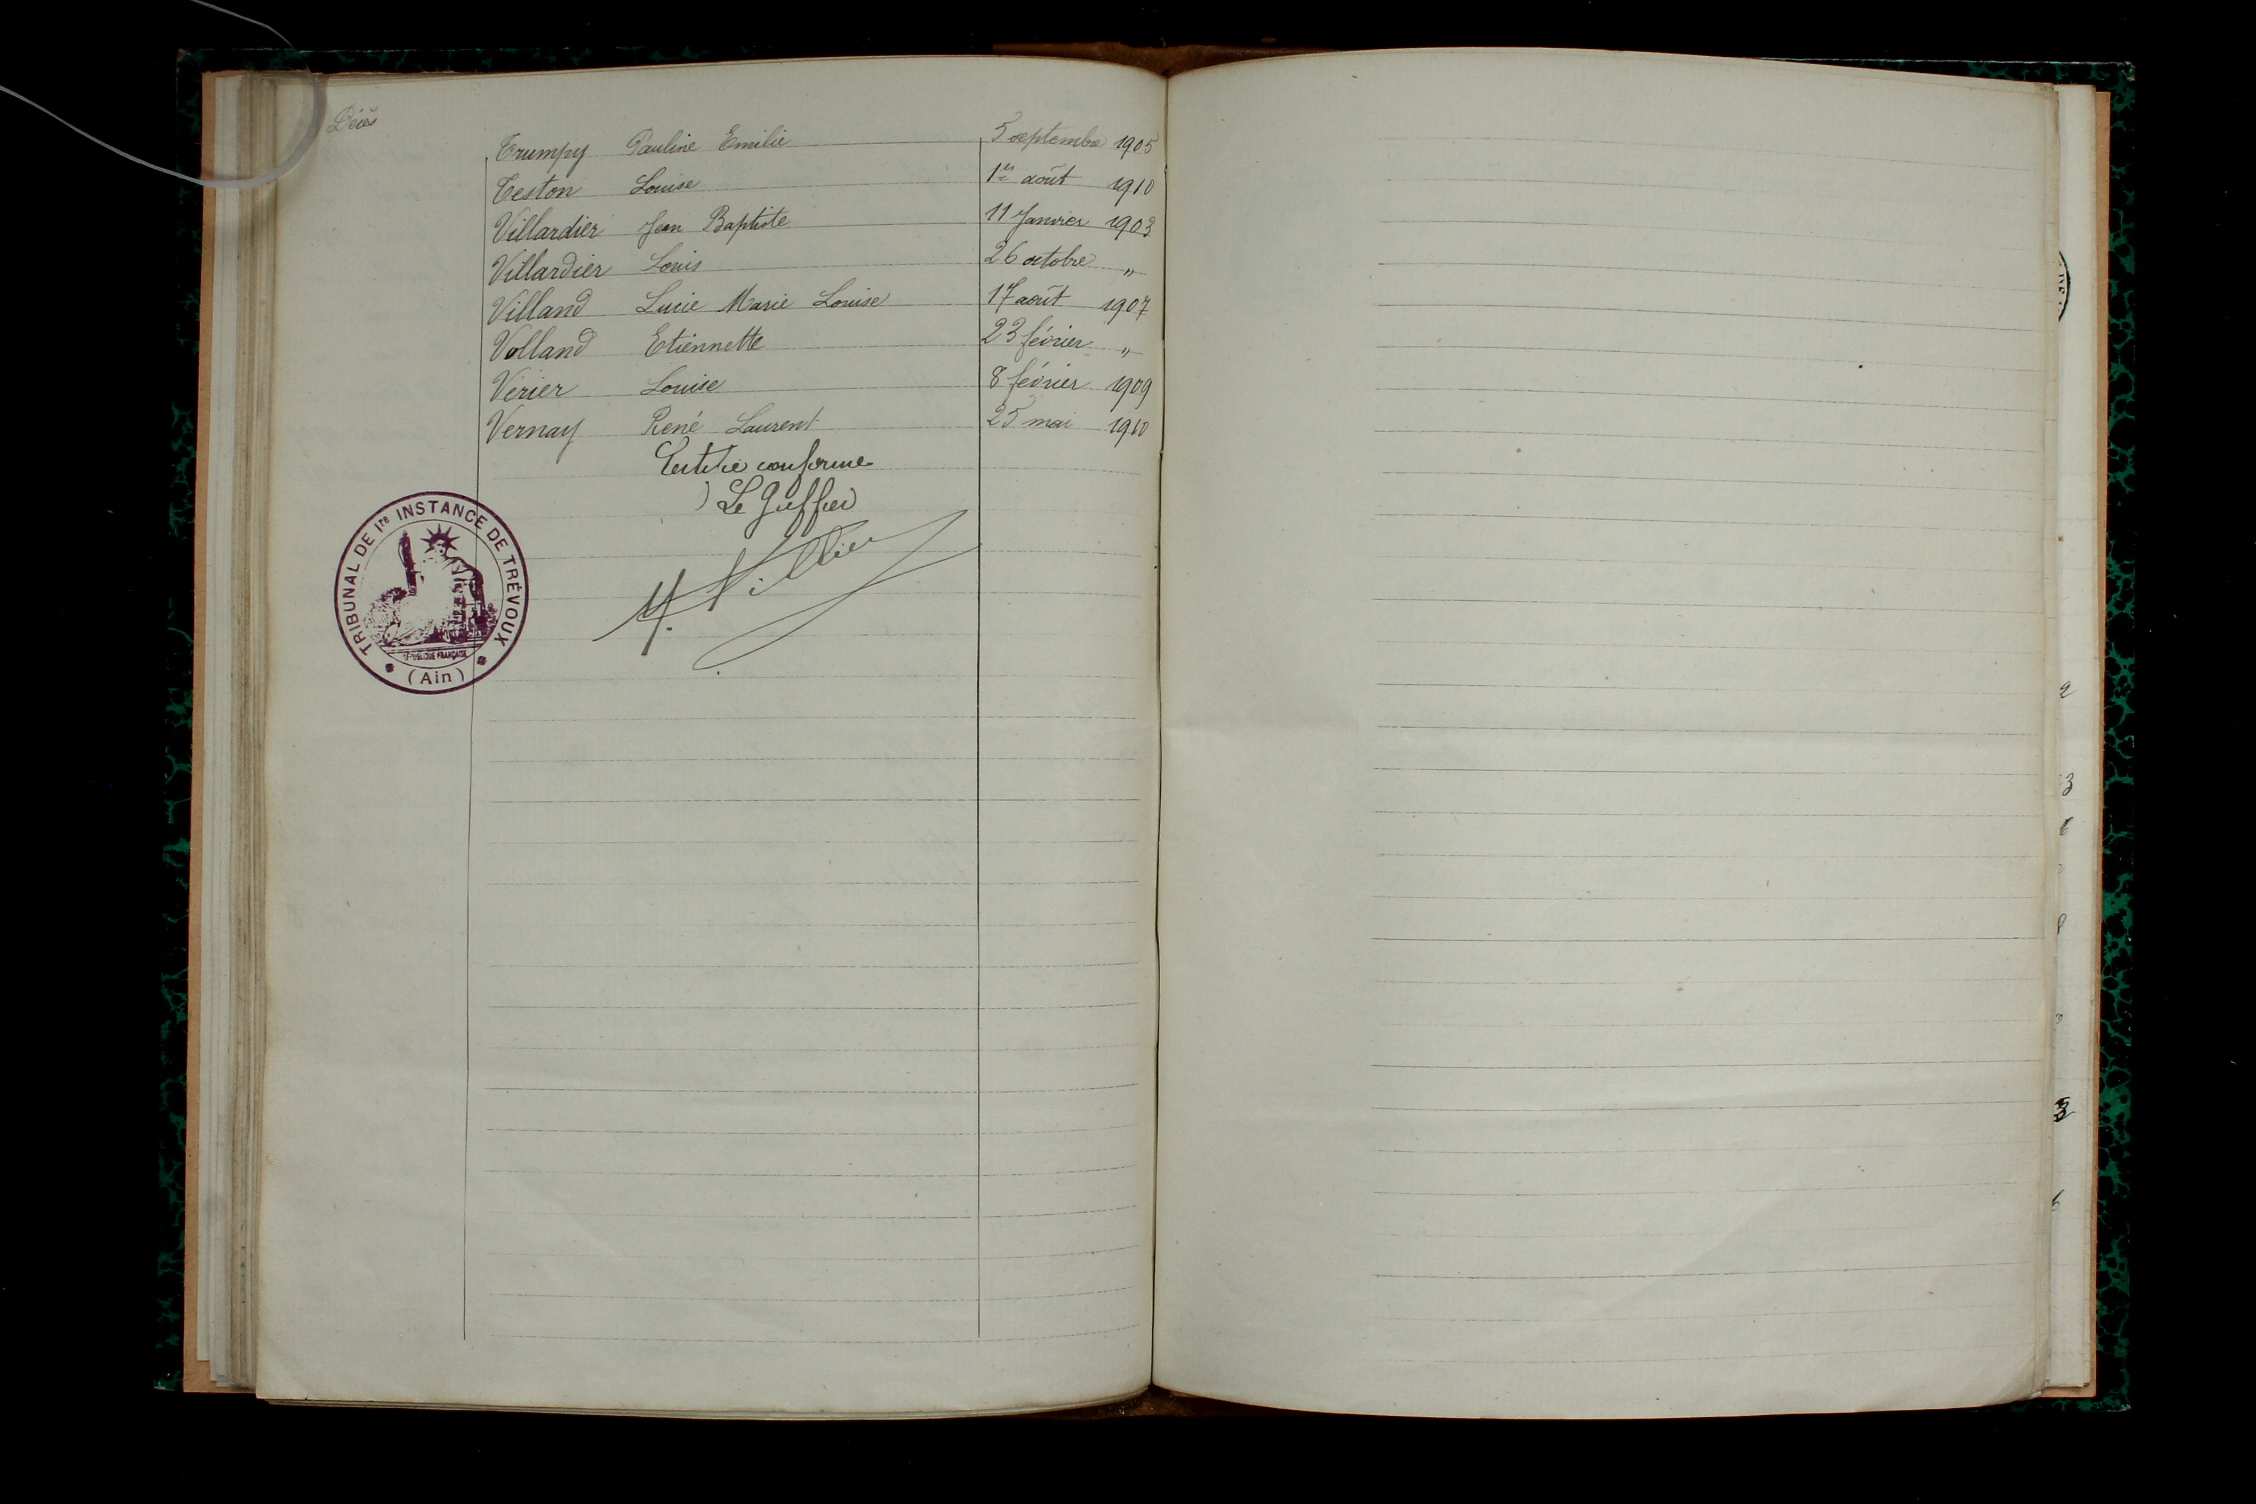 Décès
Trumpy Pauline Emilie 5 septembre 1905
Teston Louise 1er août 1910
Villardier Jean Baptiste 11 Janvier 1903
Villardier Louis 26 octobre "
Villand Lucie Marie Louise 17 août 1907
Volland Etiennette 23 février "
Vérier Louise 8 février 1909
Vernay René Laurent 25 mai 1910
Certifié conforme
Le Greffier
TRIBUNAL DE 1re INSTANCE DE TRÉVOUX
RÉPUBLIQUE FRANÇAISE
(Ain)